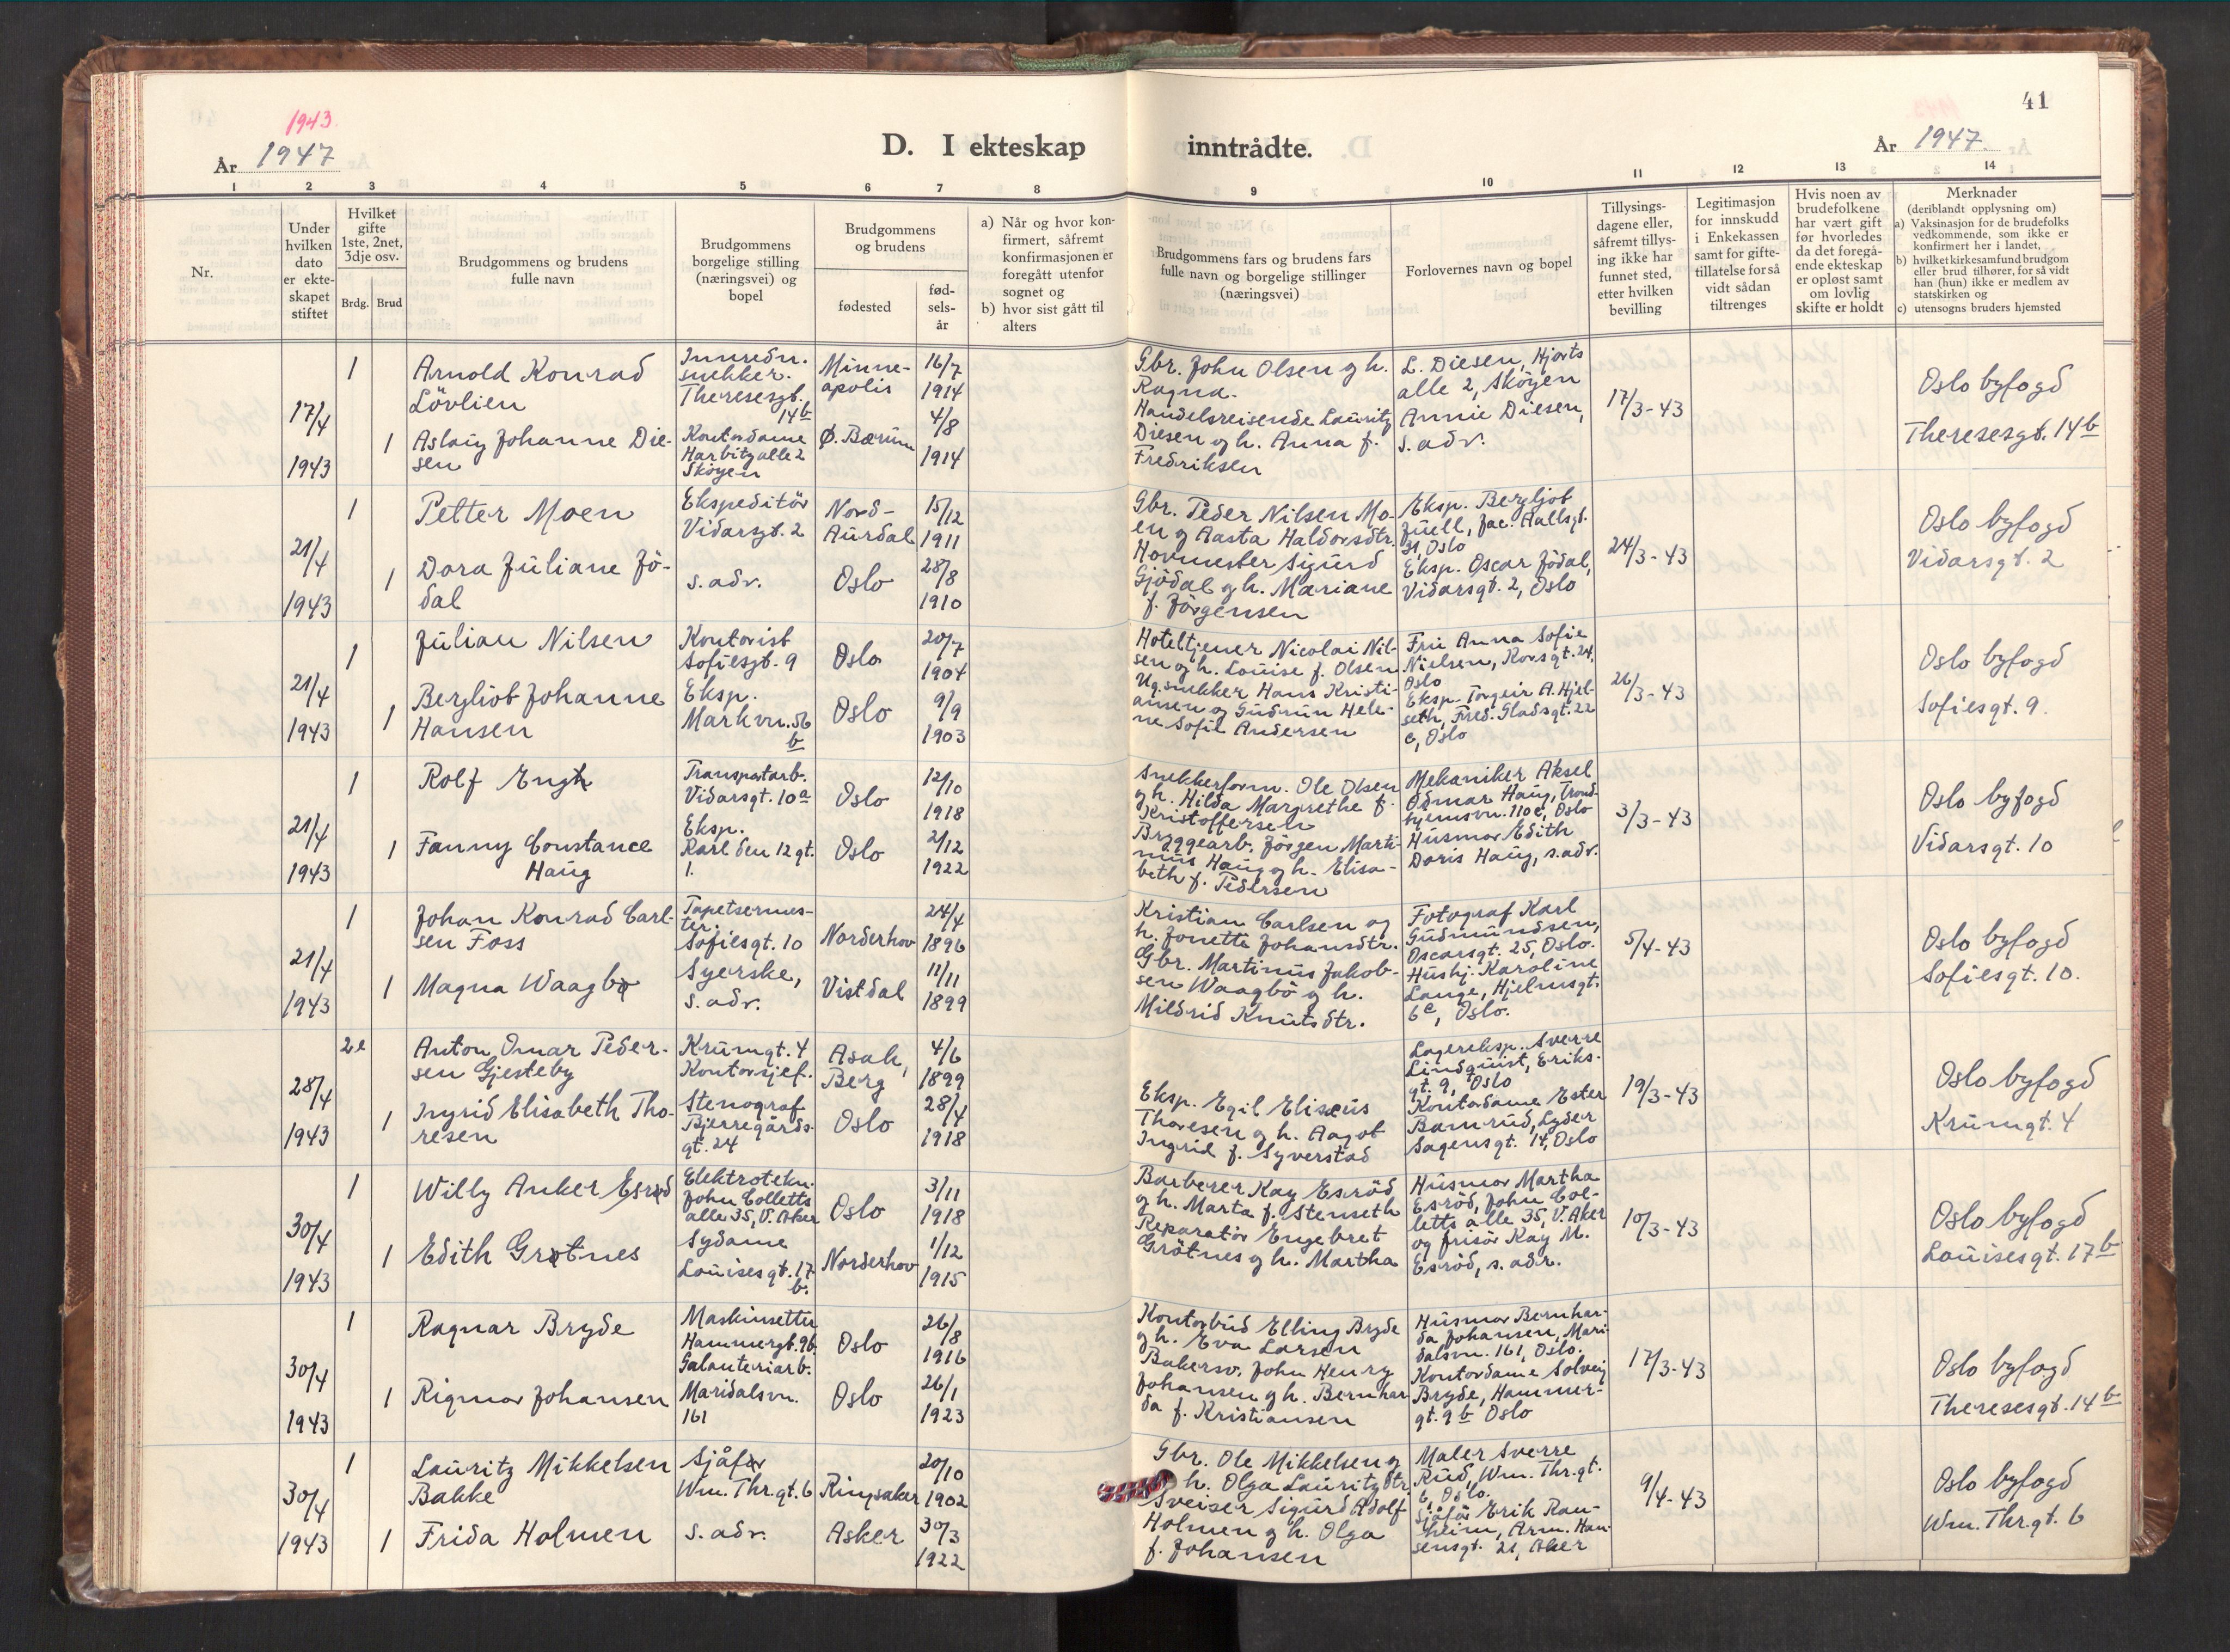 41
1943
År 1947
D. I ekteskap inntrådte.
År 1947.
1 2 3 4 5 6 7 8 9 10 11 12 13 14
Nr.
Under
hvilken
dato
er ekte-
skapet
stiftet
Hvilket
gifte
1ste, 2net,
3dje osv.
Brdg. Brud
Brudgommens og brudens
fulle navn
Brudgommens
borgelige stilling
(næringsvei) og
bopel
Brudgommens
og brudens
fødested
fød-
sels-
år
a) Når og hvor kon-
firmert, såfremt
konfirmasjonen er
foregått utenfor
sognet og
b) hvor sist gått til
alters
Brudgommens fars og brudens fars
fulle navn og borgelige stillinger
(næringsvei)
Forlovernes navn og bopel
Tillysings-
dagene eller,
såfremt tillys-
ing ikke har
funnet sted,
etter hvilken
bevilling
Legitimasjon
for innskudd
i Enkekassen
samt for gifte-
tillatelse for så
vidt sådan
tiltrenges
Hvis noen av
brudefolkene
har vært gift
før hvorledes
da det foregå-
ende ekteskap
er opløst samt
om lovlig
skifte er holdt
Merknader
(deriblandt opplysning om)
a) Vaksinasjon for de brudefolks
vedkommende, som ikke er
konfirmert her i landet,
b) hvilket kirkesamfund brudgom
eller brud tilhører, for så vidt
han (hun) ikke er medlem av
statskirken og
c) utensogns bruders hjemsted
17/4
1943
1
1
Arnold Konrad
Lövlien
Aslaug Johanne Die-
sen
Innredn.
snekker.
Theresesgt.
14b
Kontordame
Harbitzalle 2
Skøyen
Minne-
apolis
Ø. Bærum
16/7
1914
4/8
1914
Gbr. John Olsen g h.
Ragna.
Handelsreisende Lauritz
Diesen g h. Anna f.
Fredriksen
L. Diesen, Hjorts
alle 2, Skøyen
Annie Diesen,
s. adr.
17/3-43
Oslo byfogd
Theresesgt. 14b
21/4
1943
1
1
Petter Moen
Dora Juliane Jö-
dal
Ekspeditör
Vidarsgt. 2
s. adr.
Nord-
Aurdal
Oslo
15/12
1911
28/8
1910
Gbr. Peder Nilsen Mo-
en g Aasta Haldorsdtr.
Hovmester Sigurd
Gjödal g h. Mariane
f. Jörgensen
Eksp. Bergljot
Juell, Jac. Aallsgt.
31, Oslo
Eksp. Oscar Jödal,
Vidarsgt. 2, Oslo
24/3-43
Oslo byfogd
Vidarsgt. 2
21/4
1943
1
1
Julian Nilsen
Bergliot Johanne
Hansen
Kontorist
Sofiesgt. 9
Eksp.
Markvn. 56
b
Oslo
Oslo
20/7
1904
9/9
1903
Hoteltjener Nicolai Nil-
sen g h. Louise f. Olsen
Ug. snekker Hans Kristi-
ansen g Gudrun Hele-
ne Sofie Andersen
Fru Anna Sofie
Nielsen, Korsgt. 24,
Oslo
Eksp. Torgeir A. Hjel-
seth, Fred. Gladsgt. 22
c, Oslo
26/3-43
Oslo byfogd
Sofiesgt. 9.
21/4
1943
1
1
Rolf Engh
Fanny Constance
Haug
Transportarb.
Vidarsgt. 10a
Eksp.
Karl den 12 gt.
1.
Oslo
Oslo
12/10
1918
2/12
1922
Snekkerform. Ole Olsen
g h. Hilda Margrethe f.
Kristoffersen
Bryggearb. Jörgen Marti-
nius Haug g h. Elisa-
beth f. Pedersen
Mekaniker Aksel
Odmar Haug, Trond-
hjemsvn. 110c, Oslo
Husmor Edith
Doris Haug, s. adr.
3/3-43
Oslo byfogd
Vidarsgt. 10
21/4
1943
1
1
Johan Konrad Carl-
sen Foss
Magna Waagbø
Tapetsermes-
ter.
Sofiesgt. 10
Syerske,
s. adr.
Norderhov
Vistdal
24/4
1896
11/11
1899
Kristian Carlsen og
h. Jonette Johansdtr.
Gbr. Martinus Jakob-
sen Waagbö g h.
Mildrid Knutsdtr.
Fotograf Karl
Gudmundsen,
Oscarsgt. 25, Oslo.
Hushj. Karoline
Lange, Hjelmsgt.
6c, Oslo.
5/4-43
Oslo byfogd
Sofiesgt. 10.
28/4
1943
2e
1
Anton Omar Peder-
sen Gjesteby
Ingrid Elisabeth Tho-
resen
Krumgt. 4
Kontorsjef.
Stenograf
Bjerregårds-
gt. 24
Asak,
Berg
Oslo
4/6
1899
28/4
1918
Eksp. Egil Eliseus
Thoresen g h. Aagot
Ingrid f. Syverstad
Lagereksp. Sverre
Lindquist, Eriks-
gt. 9, Oslo
Kontordame Ester
Bamrud, Lyder
Sagensgt. 14, Oslo
19/3-43
Oslo byfogd
Krumgt. 4
30/4
1943
1
1
Willy Anker Esrød
Edith Grøtnes
Elektrotekn.
John Colletts
alle 35, V. Aker
Sydame
Louisesgt. 17
b.
Oslo
Norderhov
3/11
1918
1/12
1915
Barberer Kay Esröd
g h. Marta f. Stenseth
Reparatör Engebret
Grötnes g h. Martha
Husmor Martha
Esröd, John Col-
letts alle 35, V. Aker
og frisör Kay M.
Esröd, s. adr.
10/3-43
Oslo byfogd
Louisesgt. 17b
30/4
1943
1
1
Ragnar Bryde
Rigmor Johansen
Maskinsetter
Hammergt. 9b.
Galanteriarb.
Maridalsvn.
161
Oslo
Oslo
26/8
1916
26/1
1923
Kontorbud Elling Bryde
g h. Eva Larsen
Bakersv. John Henry
Johansen g h. Bernhar-
da f. Kristiansen
Husmor Bernhar-
da Johansen, Mari-
dalsvn. 161, Oslo.
Kontordame Solveig
Bryde, Hammer-
gt. 9b Oslo
17/3-43
Oslo byfogd
Theresesgt. 14b
30/4
1943
1
1
Lauritz Mikkelsen
Bakke
Frida Holmen
Sjåfør
Wm. Thr. gt. 6
s. adr.
Ringsaker
Asker
20/10
1902
30/3
1922
Gbr. Ole Mikkelsen g
h. Olga Lauritzdtr.
Sveiser Sigurd Adolf
Holmen g h. Olga
f. Johansen
Maler Sverre
Rud, Wm. Thr. gt.
6, Oslo.
Sjåför Erik Ran-
heim, Arm. Han-
sensgt. 21, Aker
9/4-43
Oslo byfogd
Wm. Thr. gt. 6